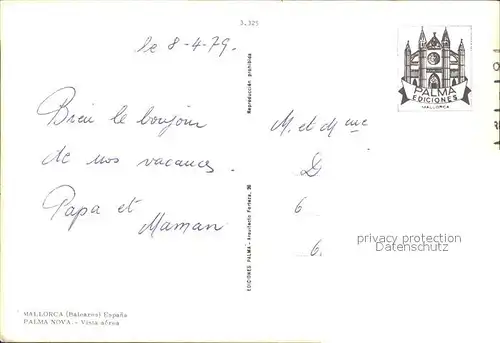 3.325
le 8-4-79.
PALMA
EDICIONES
MALLORCA
Reproducción prohibida
Bien le bonjour
de nos vacances.
Papa et
Maman
M. et Mme
D
6
6.
privacy protection
Datenschutz
EDICIONES PALMA - Arquitecto Forteza, 36
MALLORCA (Baleares) España
PALMA NOVA. - Vista aérea